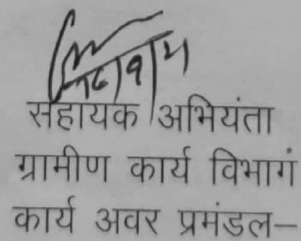 सहायक अभियंता
ग्रामीण कार्य विभागं
कार्य अवर प्रमंडल–